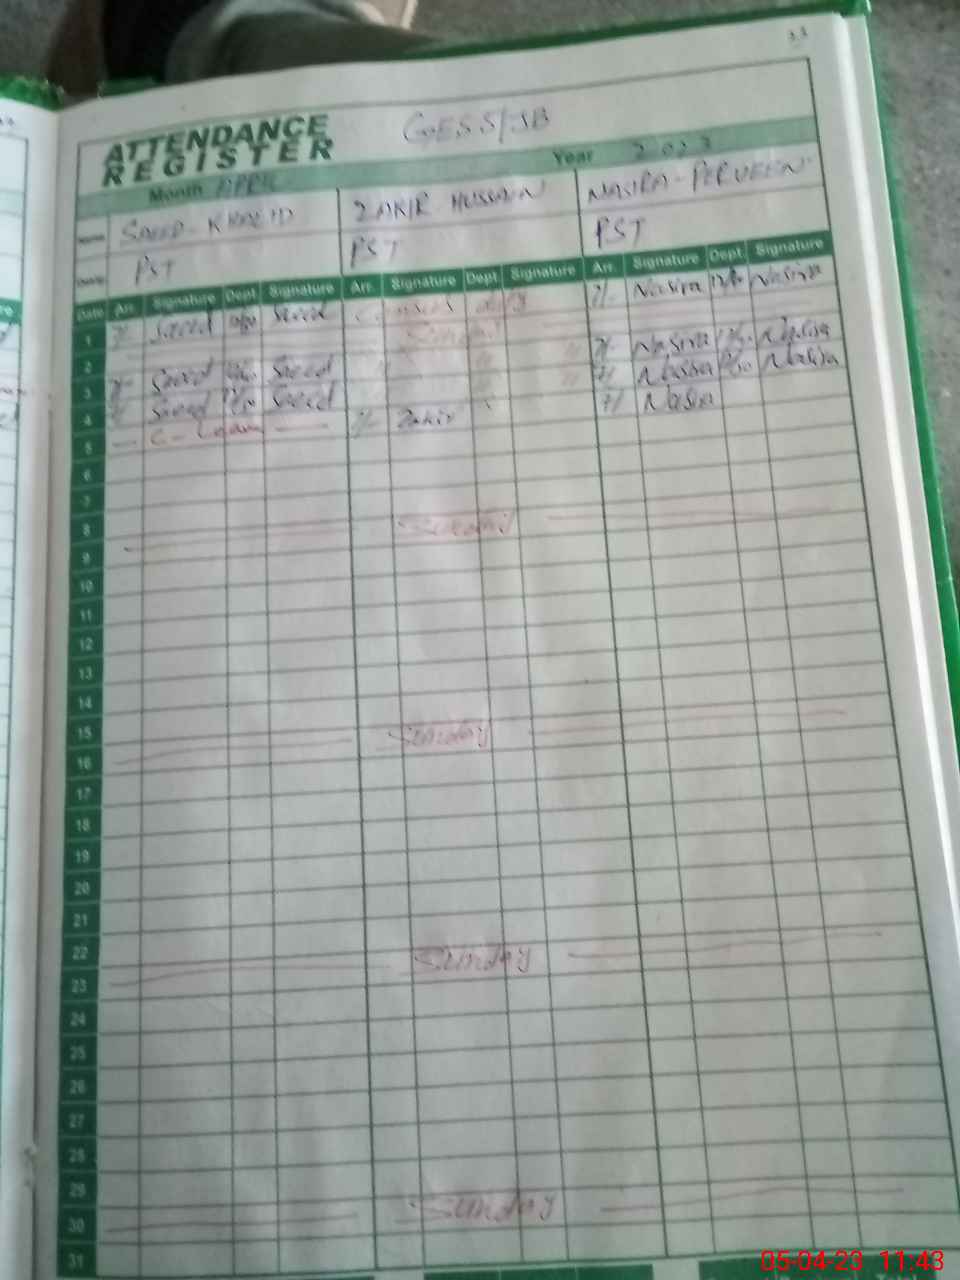 33
ATTENDANCE
REGISTER
GESS/JB
Month APRIL Year 2023
Name SAEED - KHALID ZAKIR HUSSAIN NASIRA - PERVEEN
PST PST PST
Date Arr. Signature Dept. Signature Arr. Signature Dept. Signature Arr. Signature Dept. Signature
1 7/- Saeed Saeed duty 7/- Nasira Nasira
2 Sunday
3 7/- Saeed Saeed " " " 7/- Nasira Nasira
4 7/- Saeed Saeed " " 7/ Nasira Nasira
5 — C - Leave — 7/- Zakir 7/ Nasira
6
7
8
9 Sunday
10
11
12
13
14
15
16 Sunday
17
18
19
20
21
22
23 Sunday
24
25
26
27
28
29
30 Sunday
31
05-04-23 11:43